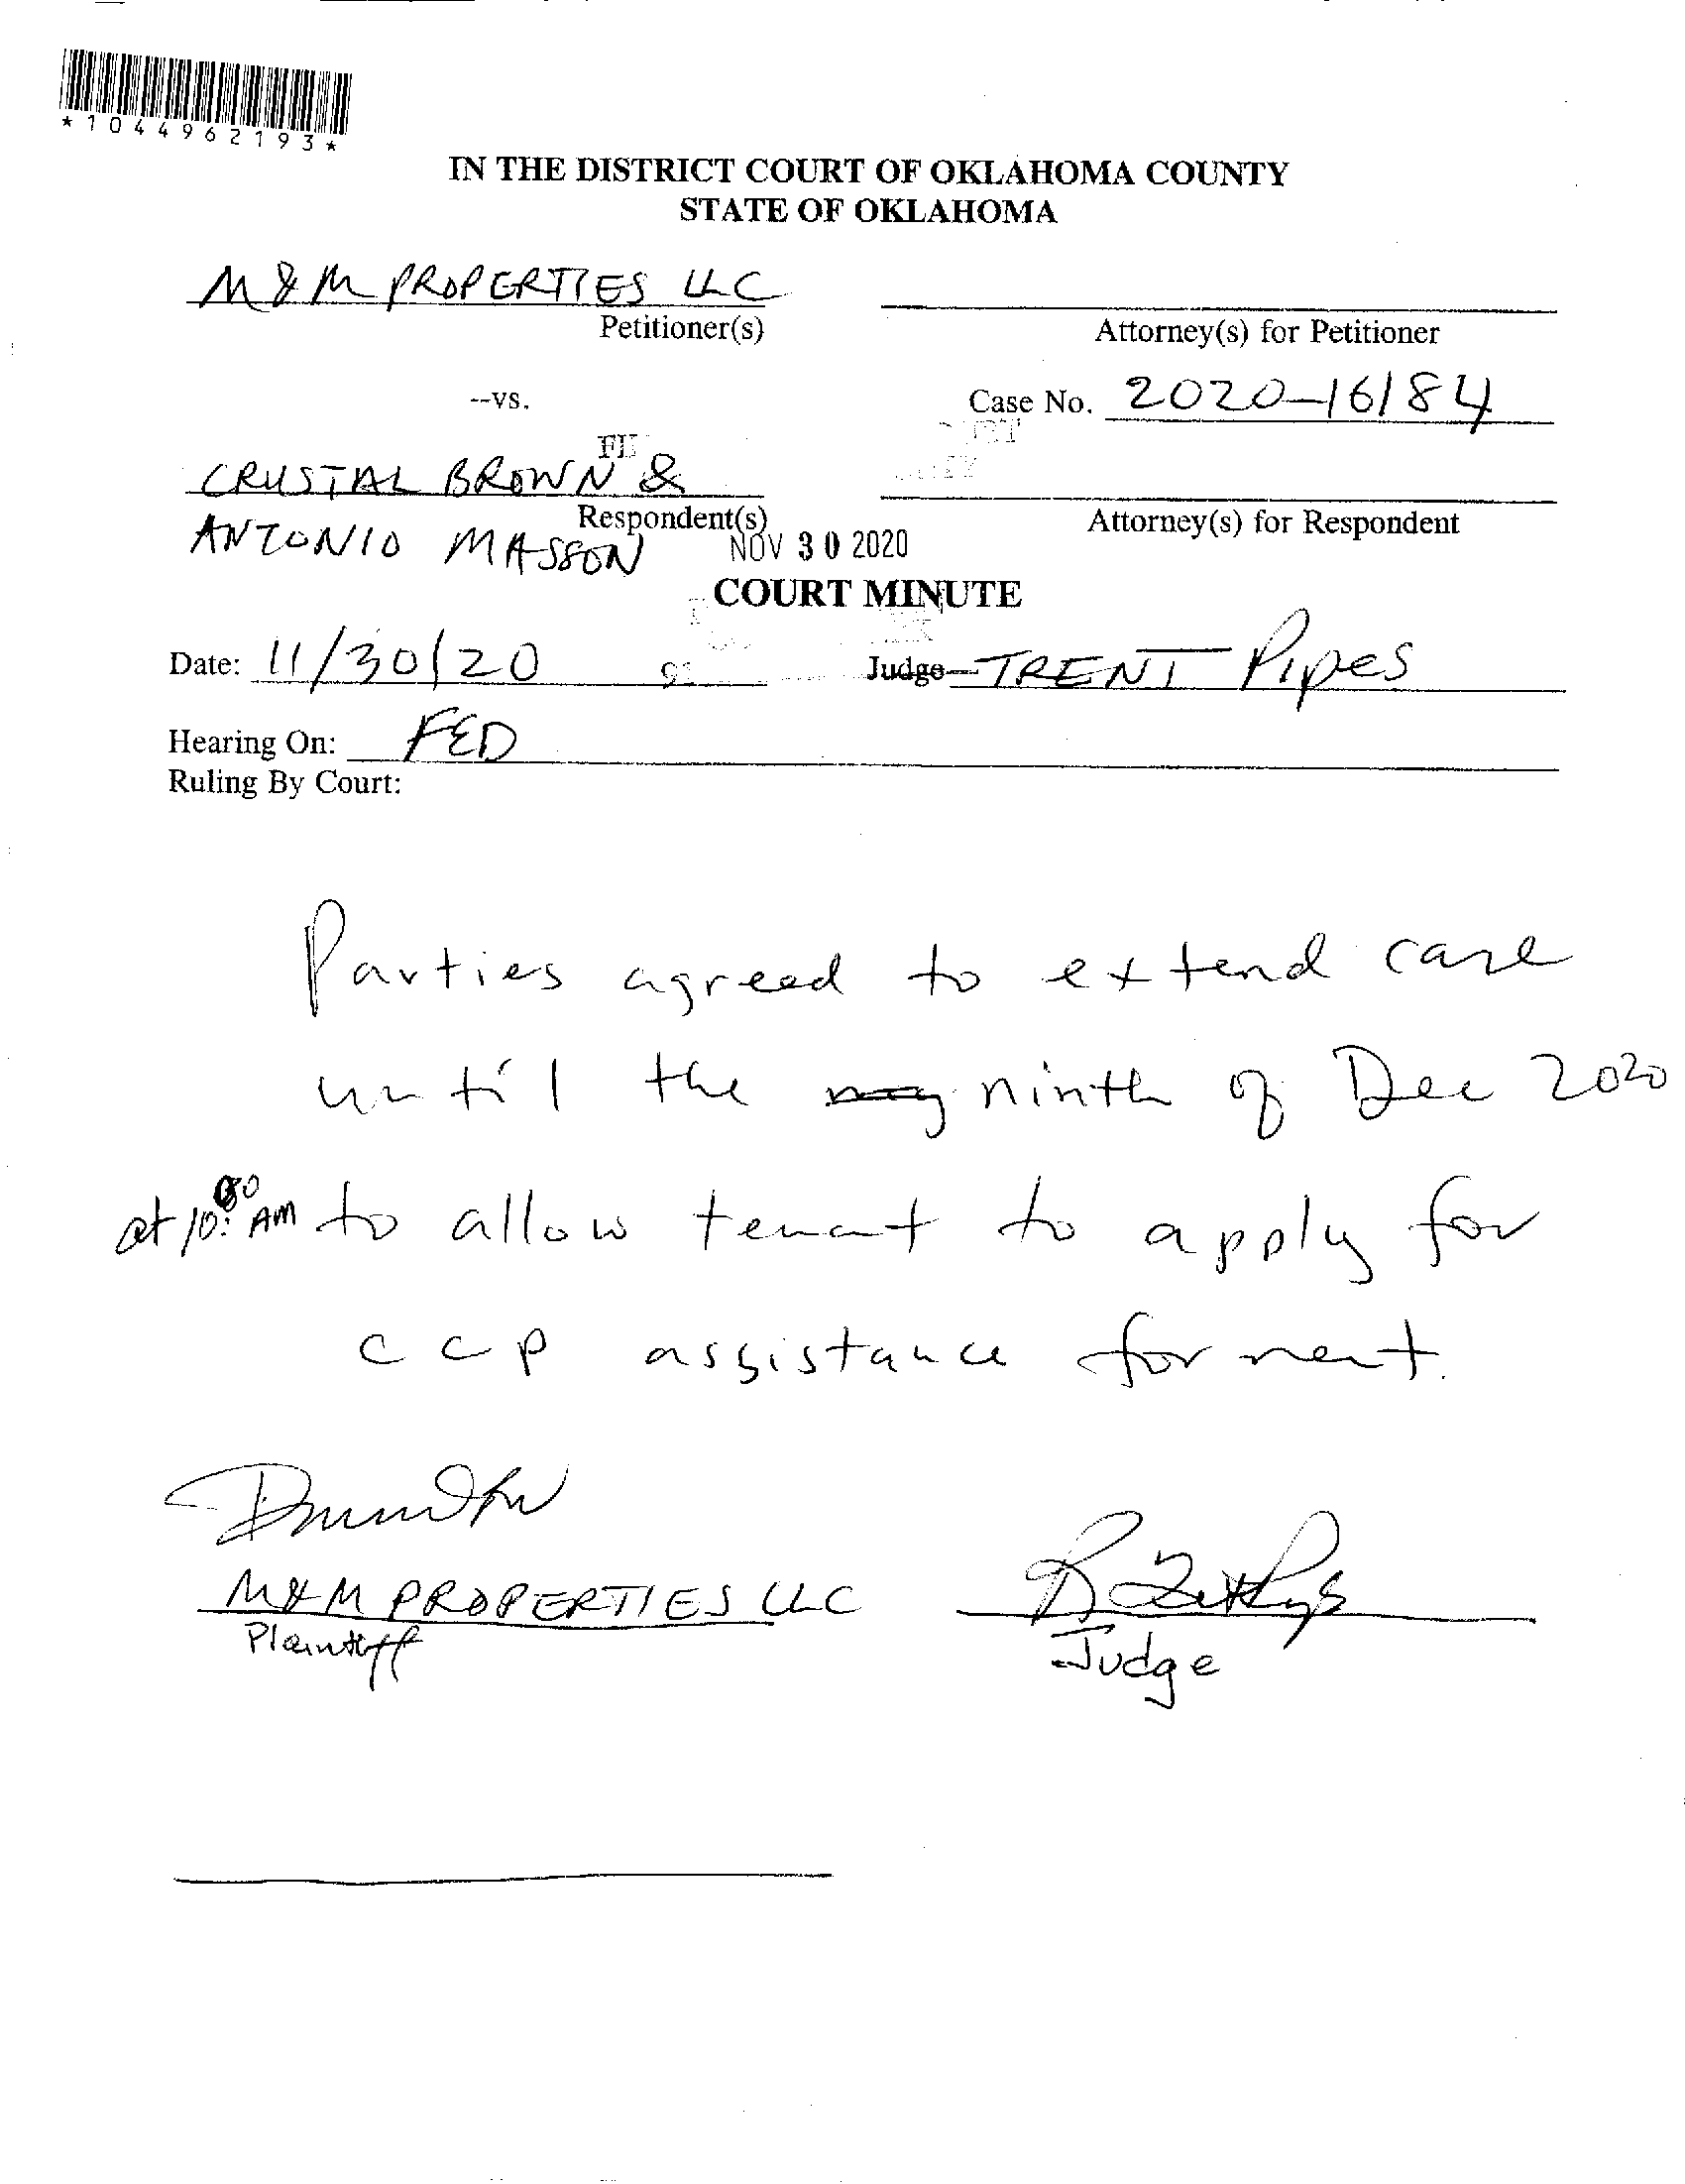 *1044962193*
IN THE DISTRICT COURT OF OKLAHOMA COUNTY
STATE OF OKLAHOMA
M & M PROPERTIES LLC
Petitioner(s)
Attorney(s) for Petitioner
--vs.
Case No. 2020-16184
CRUSTAL BROWN &
Respondent(s)
ANTONIO MASSON
Attorney(s) for Respondent
NOV 30 2020
COURT MINUTE
Date: 11/30/20
Judge TRENT Pipes
Hearing On: FED
Ruling By Court:
Parties agreed to extend case
until the ninth of Dec 2020
at 10:00 AM to allow tenant to apply for
ccp assistance for rent.
M&M PROPERTIES LLC
Plaintiff
Judge